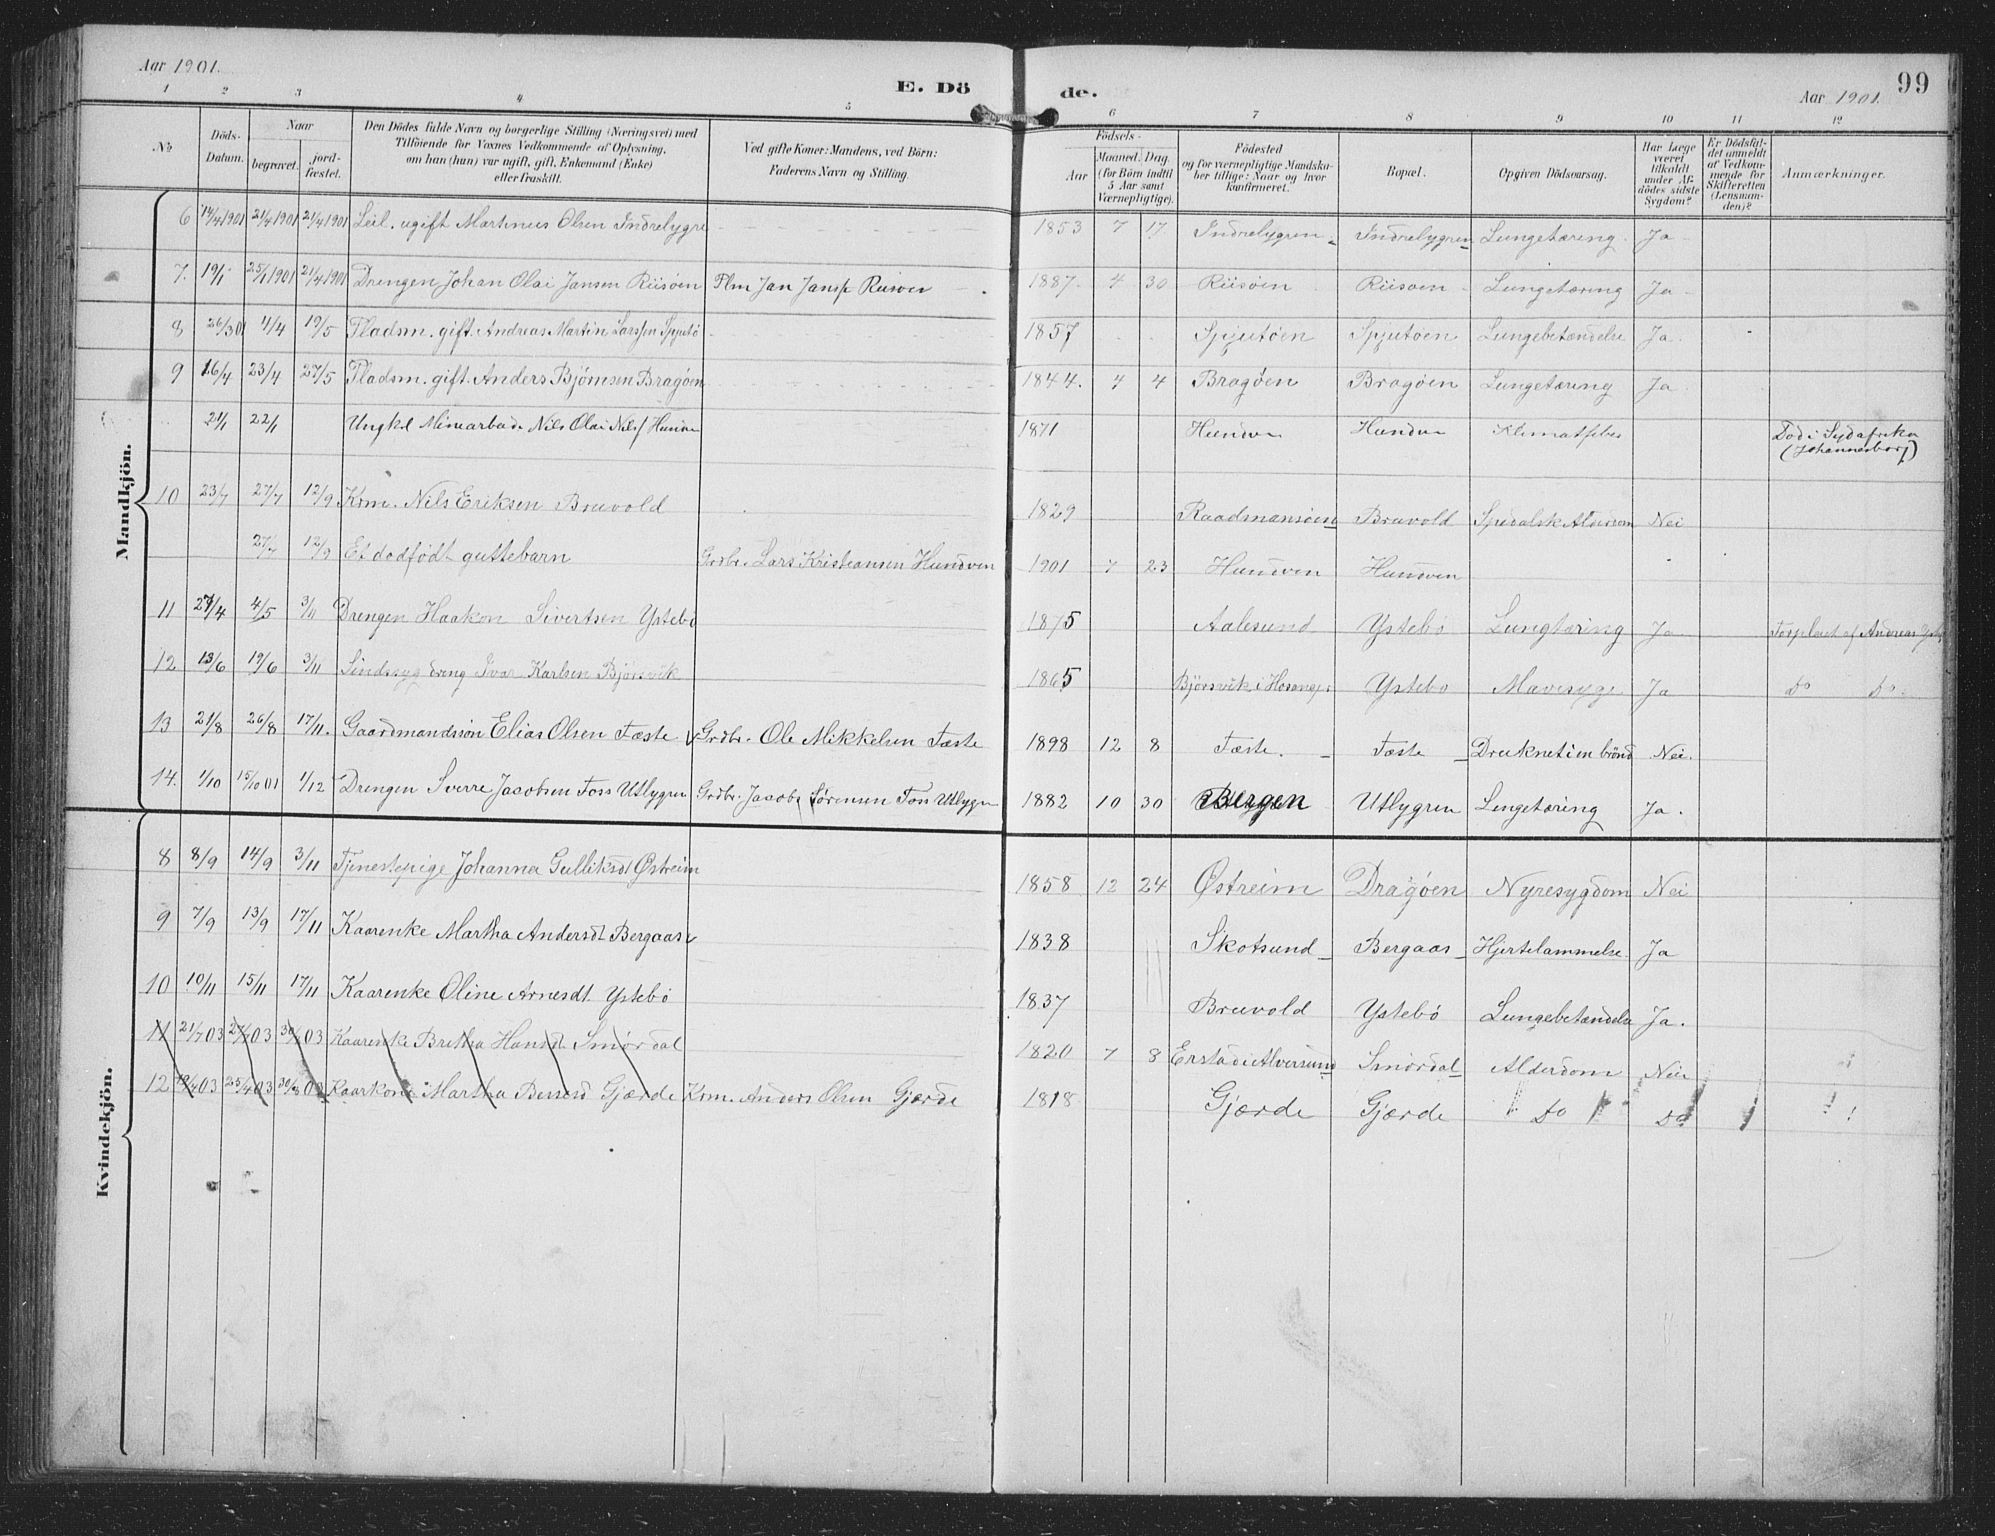 Aar 1901.
E. Dö
de.
99
Aar 1901.
1 2 3 4 5 6 7 8 9 10 11 12
No
Döds-
Datum.
Naar
begravet.
jord-
fæstet.
Den Dödes fulde Navn og borgerlige Stilling (Næringsvei) med
Tilföiende for Voxnes Vedkommende af Oplysning,
om han (hun) var ugift, gift, Enkemand (Enke)
eller fraskilt.
Ved gifte Koner: Mandens, ved Börn:
Faderens Navn og Stilling.
Födsels-
Aar
Maaned. Dag.
(for Börn indtil
5 Aar samt
Værnepligtige).
Födested
og for værnepligtige Mandska-
ber tillige: Naar og hvor
konfirmeret.
Bopæl.
Opgiven Dödsaarsag.
Har Læge
været
tilkaldt
under Af-
dödes sidste
Sygdom?
Er Dödsfal-
det anmeldt
af Vedkom-
mende for
Skifteretten
(Lensman-
den)?
Anmærkninger.
Mandkjön.
6 14/4 1901 21/4 1901 21/4 1901 Leil. ugift Martinus Olsen Indrelygre 1853 7 17 Indrelygren Indrelygren Lungetæring Ja
7. 19/1 25/1 1901 21/4 1901 Drengen Johan Olai Jansen Riisöen Plm Jan Jans Riisöen 1887 4 30 Riisöen Riisöen Lungetæring Ja
8 26/3 01 4/4 19/5 Pladsm. gift Andreas Martin Larssen Spjutö 1857 Spjutöen Spjutöen Lungebetændelse Ja.
9 16/4 23/4 27/5 Pladsm. gift Anders Björnsen Bragöen 1844. 4 Bragöen Bragöen Lungetæring Ja
21/1 22/1 Ungkl Minearbeid Nils Olai Nils 1871 Hundve Hundve Klimatfeber Död i Sydafrika
(Johannesborg)
10 23/7 27/7 12/9 Krm. Nils Eriksen Bruvold 1829 Raadmansöen Bruvold Spedalsk Alderdom Nei
27/7 12/9 Et dödfödt guttebarn Grdbr. Lars Kristiansen Hundven 1901 7 23 Hundven Hundven
11 27/4 4/5 3/11 Drengen Haakon Sivertsen Ystebö 1875 Aalesund Ystebö Lungtæring Ja Forpleiet af Andreas
12 13/6 19/6 3/11 Sindssyg dreng Ivar Karlsen Björsvik 1865 Björsvik i Hosanger Ystebö Mavesyge Ja Do Do
13 21/8 26/8 17/11. Gaardmandssön Elias Olsen Fæste Grdbr. Ole Mikkelsen Fæste 1898 12 8 Fæste. Fæste Druknet i en brönd Nei.
14. 1/10 15/10 01 1/12 Drengen Sverre Jacobsen Foss Utlygren Grdbr. Jacob Sörensen Foss Utlygren 1882 10 30 Bergen Utlygren Lungetæring Ja.
Kvindekjön.
8 8/9 14/9 3/11 Tjenestepige Johanna Gulliksdt Østreim 1858 12 24 Østreim Dragöen Nyresygdom Nei
9 7/9 13/9 17/11 Kaarenke Martha Andersdt Bergaas 1838 Skotsund Bergaas Hjertelammelse Ja
10 10/11 15/11 17/11 Kaarenke Oline Arnesdt Ystebö 1837 Bruvold Ystebö Lungebetændelse Ja.
11 21/7 03 27/7 03 30/8 03 Kaarenke Britha Hansdt Smördal 1820 7 8 Erstad i Alversund Smördal Alderdom Nei
12 19/4 03 25/4 03 30/8 03 Kaarkone Martha Gjærde Krm. Anders Olsen Gjærde 1818 Gjærde Gjærde Do Do